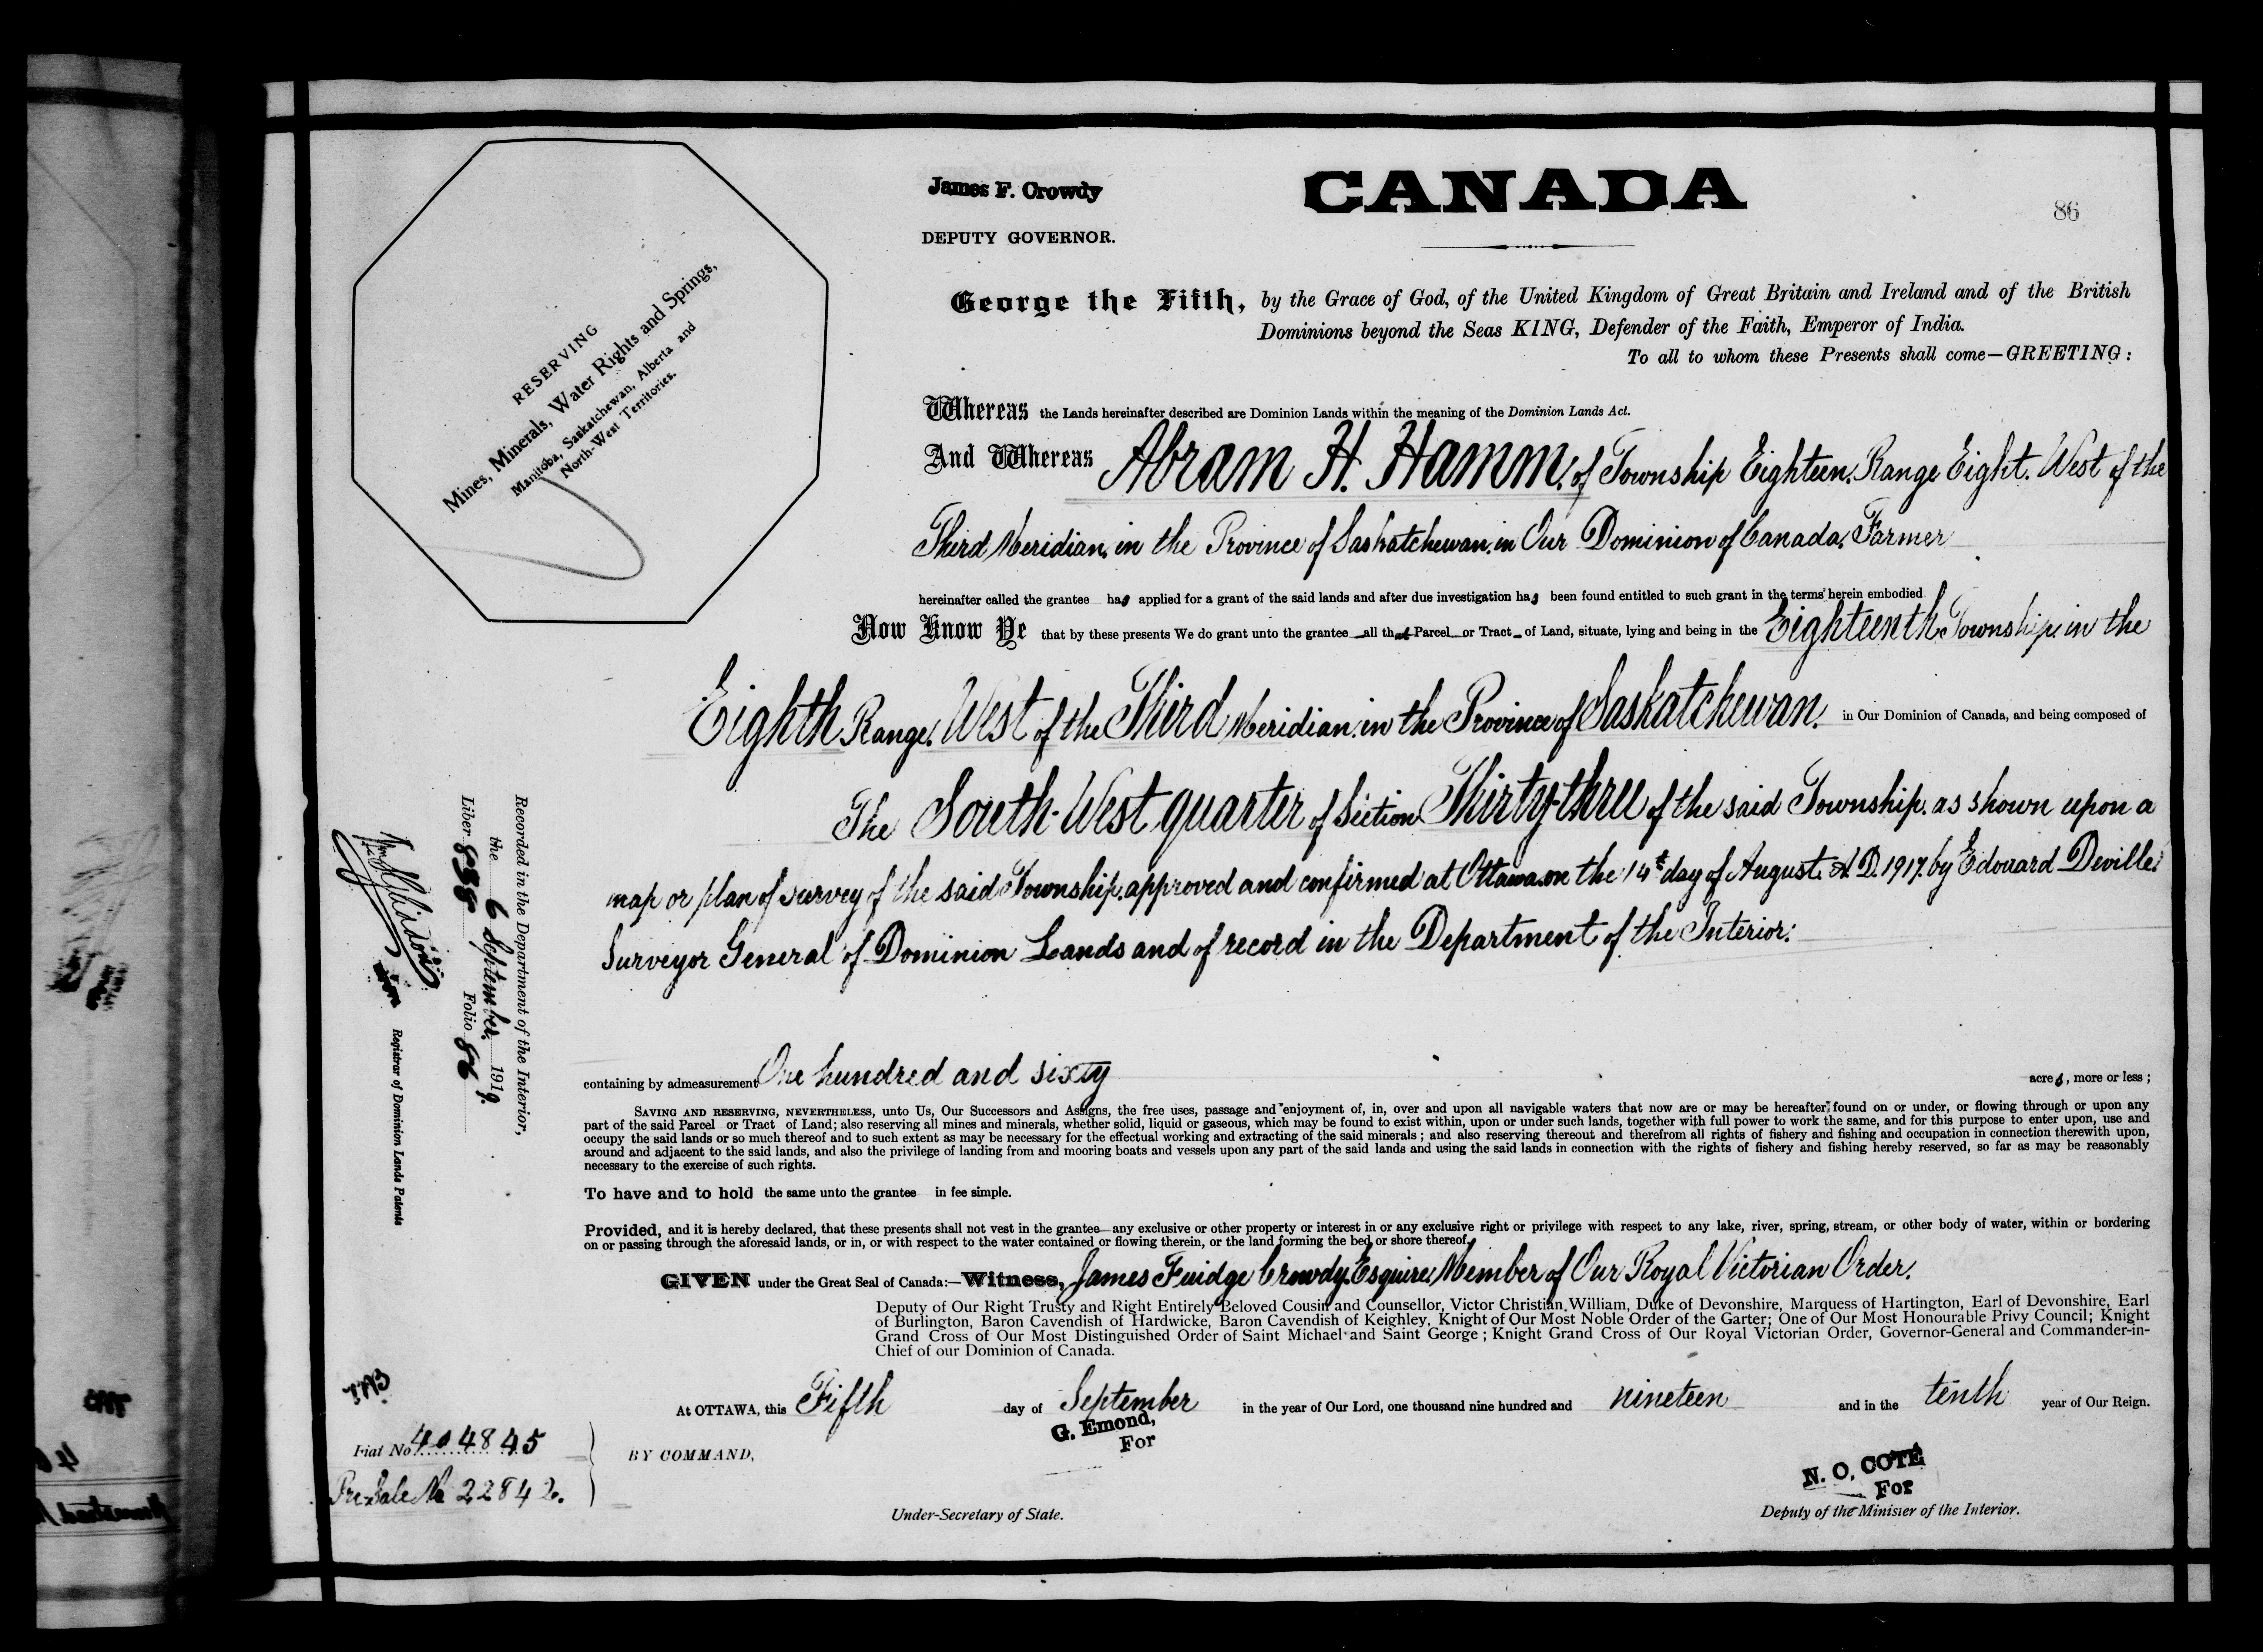 James F. Crowdy
DEPUTY GOVERNOR.
CANADA
86
RESERVING
Mines, Minerals, Water Rights and Springs,
Manitoba, Saskatchewan, Alberta and
North-West Territories.
George the Fifth, by the Grace of God, of the United Kingdom of Great Britain and Ireland and of the British
Dominions beyond the Seas KING, Defender of the Faith, Emperor of India.
To all to whom these Presents shall come—GREETING:
Whereas the Lands hereinafter described are Dominion Lands within the meaning of the Dominion Lands Act.
And Whereas Abram H. Hamm, of Township Eighteen, Range Eight, West of the
Third Meridian, in the Province of Saskatchewan, in Our Dominion of Canada, Farmer
hereinafter called the grantee has applied for a grant of the said lands and after due investigation has been found entitled to such grant in the terms herein embodied
Now Know Ye that by these presents We do grant unto the grantee all that Parcel or Tract of Land, situate, lying and being in the Eighteenth Township, in the
Eighth Range, West of the Third Meridian, in the Province of Saskatchewan, in Our Dominion of Canada, and being composed of
The South-West quarter of Section Thirty-three of the said Township, as shown upon a
map or plan of survey of the said Township, approved and confirmed at Ottawa, on the 14t day of August, A.D. 1917, by Edouard Deville,
Surveyor General of Dominion Lands and of record in the Department of the Interior:
containing by admeasurement One hundred and sixty acres, more or less;
SAVING AND RESERVING, NEVERTHELESS, unto Us, Our Successors and Assigns, the free uses, passage and enjoyment of, in, over and upon all navigable waters that now are or may be hereafter found on or under, or flowing through or upon any
part of the said Parcel or Tract of Land; also reserving all mines and minerals, whether solid, liquid or gaseous, which may be found to exist within, upon or under such lands, together with full power to work the same, and for this purpose to enter upon, use and
occupy the said lands or so much thereof and to such extent as may be necessary for the effectual working and extracting of the said minerals; and also reserving thereout and therefrom all rights of fishery and fishing and occupation in connection therewith upon,
around and adjacent to the said lands, and also the privilege of landing from and mooring boats and vessels upon any part of the said lands and using the said lands in connection with the rights of fishery and fishing hereby reserved, so far as may be reasonably
necessary to the exercise of such rights.
To have and to hold the same unto the grantee in fee simple.
Provided, and it is hereby declared, that these presents shall not vest in the grantee any exclusive or other property or interest in or any exclusive right or privilege with respect to any lake, river, spring, stream, or other body of water, within or bordering
on or passing through the aforesaid lands, or in, or with respect to the water contained or flowing therein, or the land forming the bed or shore thereof.
GIVEN under the Great Seal of Canada:—Witness, James Fuidge Crowdy, Esquire, Member of Our Royal Victorian Order,
Deputy of Our Right Trusty and Right Entirely Beloved Cousin and Counsellor, Victor Christian William, Duke of Devonshire, Marquess of Hartington, Earl of Devonshire, Earl
of Burlington, Baron Cavendish of Hardwicke, Baron Cavendish of Keighley, Knight of Our Most Noble Order of the Garter; One of Our Most Honourable Privy Council; Knight
Grand Cross of Our Most Distinguished Order of Saint Michael and Saint George; Knight Grand Cross of Our Royal Victorian Order, Governor-General and Commander-in-
Chief of our Dominion of Canada.
At OTTAWA, this Fifth day of September in the year of Our Lord, one thousand nine hundred and nineteen and in the tenth year of Our Reign.
BY COMMAND,
G. Emond,
For
Under-Secretary of State.
N. O. COTE
For
Deputy of the Minister of the Interior.
Recorded in the Department of the Interior,
the 6 September, 1919.
Liber 858 Folio 86
Registrar of Dominion Lands Patents
Fiat No 404845
Pre. Sale No 22842.